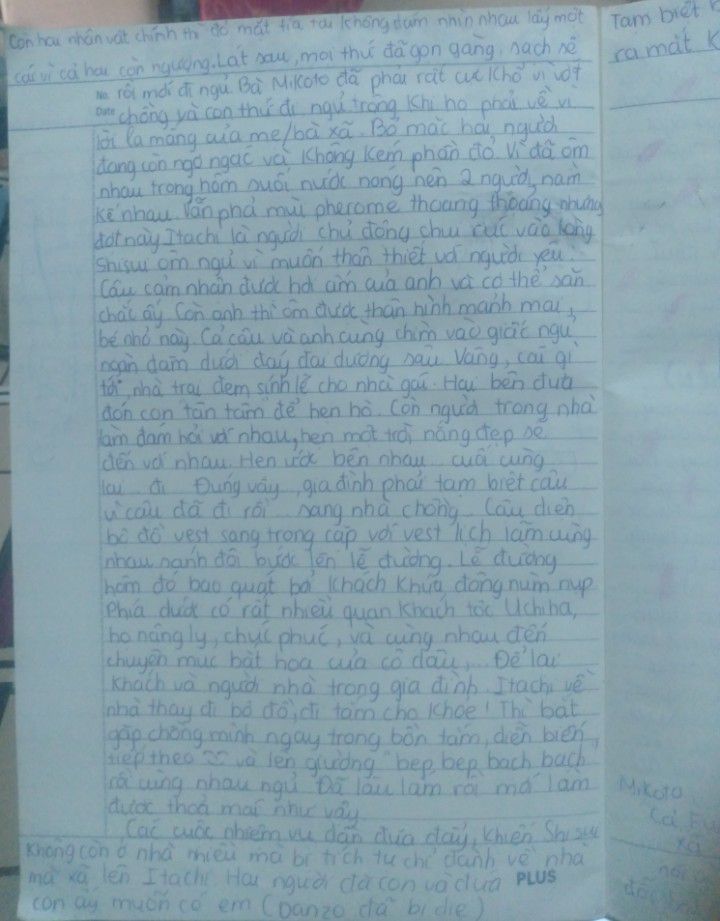 Còn hai nhân vật chính thì đỏ mặt tía tai không dám nhìn nhau lấy một
cái vì cả hai còn ngượng. Lát sau, mọi thứ đã gọn gàng, sạch sẽ
No. rồi mới đi ngủ. Bà Mikoto đã phải rất cực khổ vì vớt
Date chồng và con thứ đi ngủ trong khi họ phải về vì
lời la mắng của mẹ/bà xã. Bỏ mặc hai người
đang còn ngơ ngác và không kém phần đỏ. Vì đã ôm
nhau trong hôm suối nước nóng nên 2 người nằm
kế nhau. Vẫn phả mùi pherome thoang thoảng nhưng
đợt này Itachi là người chủ động chui rúc vào lòng
Shisui ôm ngủ vì muốn thân thiết với người yêu.
Cậu cảm nhận được hơi ấm của anh và cơ thể săn
chắc ấy. Còn anh thì ôm được thân hình mảnh mai,
bé nhỏ này. Cả cậu và anh cùng chìm vào giấc ngủ
ngàn dặm dưới đáy đại dương sâu. Vâng, cái gì
tới, nhà trai đem sính lễ cho nhà gái. Hai bên đưa
đón con tân tâm để hẹn hò. Còn người trong nhà
làm đám hỏi với nhau, hẹn một trời nắng đẹp sẽ
đến với nhau. Hẹn ước bên nhau cuối cùng
lại đi. Đúng vậy, gia đình phải tạm biệt cậu
vì cậu đã đi rồi sang nhà chồng. Cậu diện
bộ đồ vest sang trọng cặp với vest lịch lãm cùng
nhau sánh đôi bước lên lễ đường. Lễ đường
hôm đó bao quát bả khách khứa đông nùm nụp
Phía dưới có rất nhiều quan khách tộc Uchiha,
họ nâng ly, chúc phúc, và cùng nhau đến
chuyên mục bật hoa của cô dâu,... Để lại
khách và người nhà trong gia đình. Itachi về
nhà thay đi bộ đồ, đi tắm cho khỏe! Thì bắt
gặp chồng mình ngay trong bồn tắm, diễn biến
tiếp theo và lên giường "bẹp bẹp bạch bạch
rồi cùng nhau ngủ. Đã lâu lắm rồi mới làm
được thoả mái như vậy
Các cuộc nhiệm vụ dần đưa đẩy, khiến Shisui
không còn ở nhà nhiều mà bị tích tụ chỉ dành về nhà
mà xã lên Itachi. Hai người đã có con và đứa PLUS
con ấy muốn có em (Danzo đã bị die)
Tạm biệt
ra mắt
Mikoto
Cả
xã